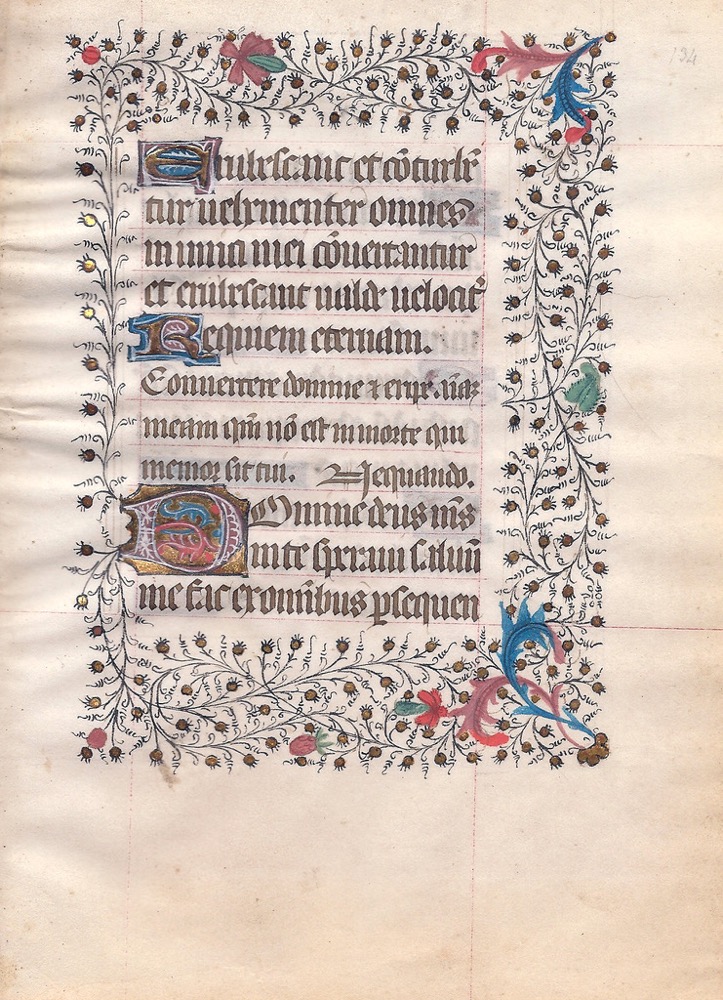 134
Erubescant et cōturbē
tur vehementer omnes
inimici mei cōvertantur
et erubescant valde velocit᷑
Requiem eternam.
Convertere domine ⁊ eripe aīaʒ
meam qm̄ nō est in morte qui
memor sit tui. Nequando.
Domine deus m̄s
in te speravi salvū
me fac ex omībus ꝑsequen